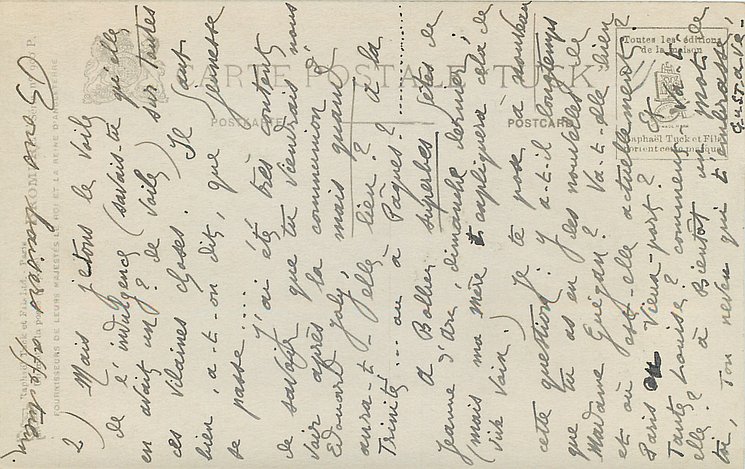 2) Mais jetons le voile
de l'indulgence (savais-tu qu'elle
en avait un? de voile) sur toutes
ces vilaines choses. Il faut
bien, a-t-on dit, que jeunesse
se passe.....
J'ai été très content
de savoir que tu viendrais nous
voir après la communion d'
Edouard Joly, mais quand
aura-t-elle lieu? à la
Trinité... ou à Pâques?
à Bollier superbes fêtes de
Jeanne d'Arc, dimanche dernier
(mais ma mère t'expliquera cela de
vive voix.)
Je te pose à nouveau
cette question: y a-t-il longtemps
que tu as eu des nouvelles de
Madame Guégan? Va-t-elle bien
et où est-elle actuellement?
Paris ou Vieux-port? Et
Tante Louise? comment va-t-
elle? à Bientôt un mot de
toi, Ton neveu qui t'embrasse,
Gustave.
CARTE POSTALE TUCK
POSTCARTE
POSTCARD
Toutes les éditions
de la maison
Raphaël Tuck et Fils
portent cette marque
Raphaël Tuck et Fils Ltd, Paris
FOURNISSEURS DE LEURS MAJESTÉS LE ROI ET LA REINE D'ANGLETERRE